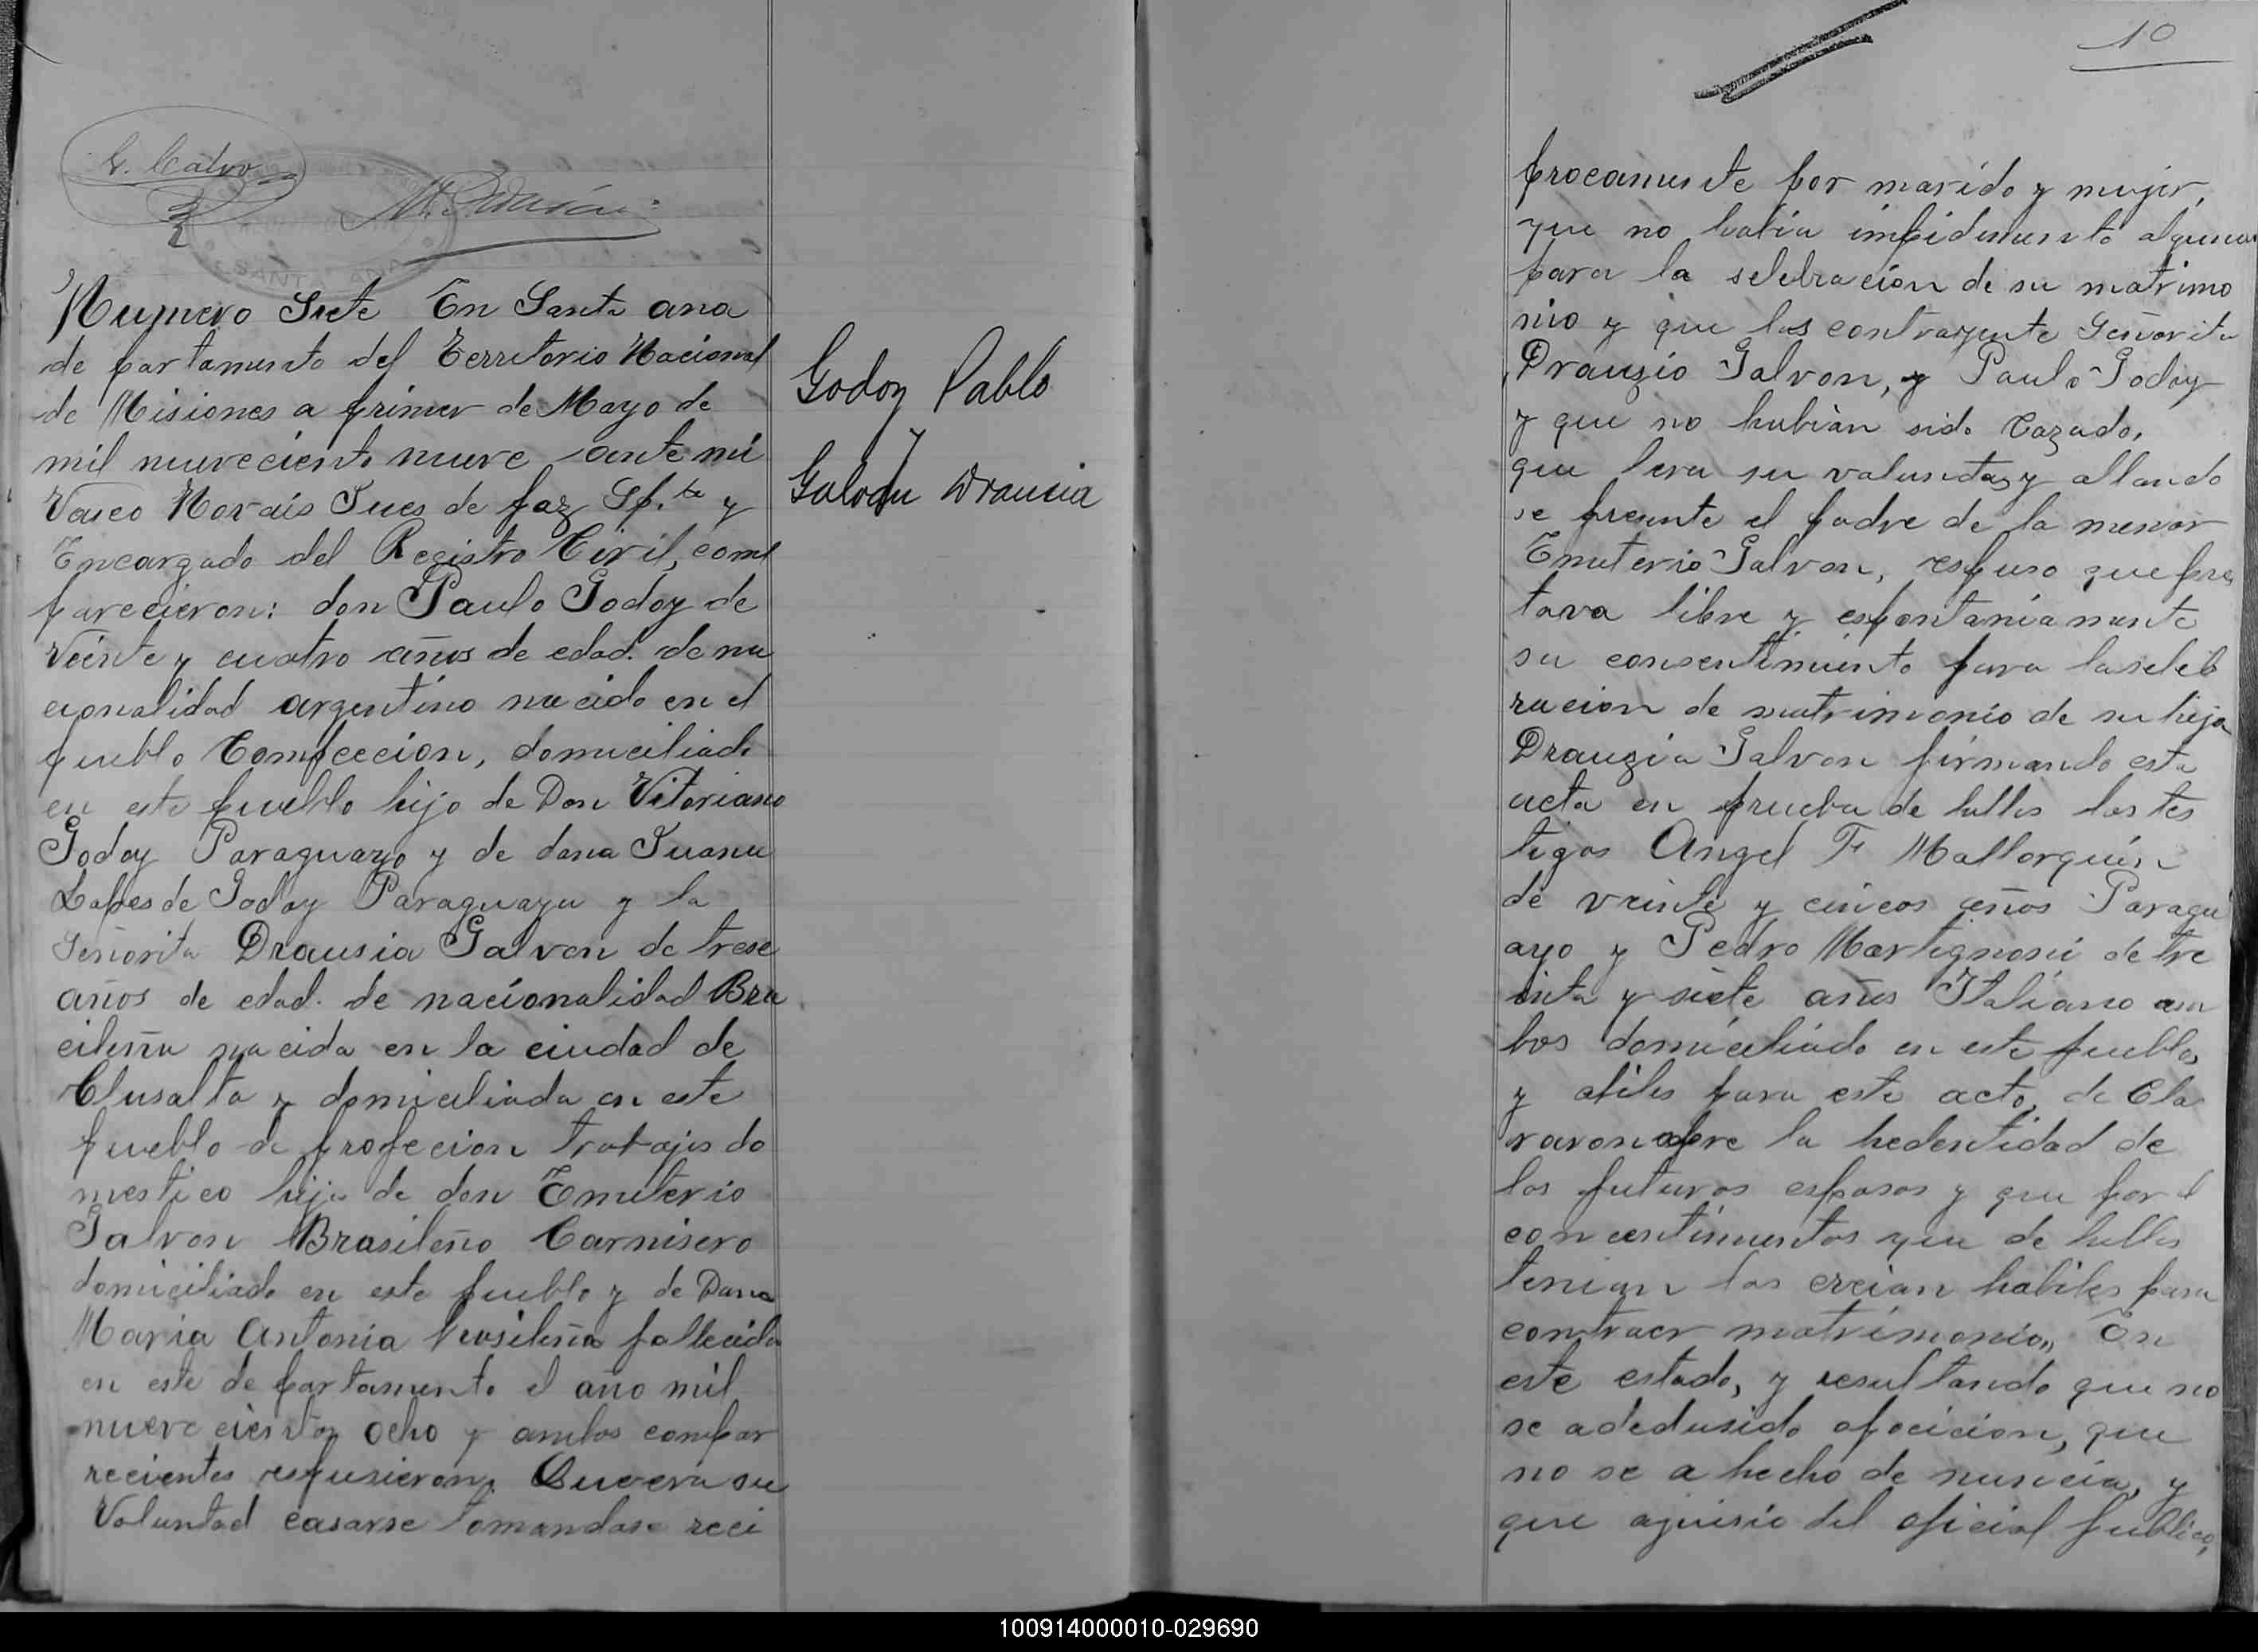 Numero Siete En Santa ana
de partamento del Territorio Nacional
de Misiones a primer de Mayo de
mil nuveciento nueve ante mi
Vasco Morais Jues de paz Sp.te y
Encargado del Registro Civil, com
parecieron: don Paulo Godoy de
Veinte y cuatro años de edad. de na
cionalidad argentino nacido en el
pueblo Compcecion, domiciliado
en este pueblo hijo de Don Vitoriano
Godoy Paraguayo y de dona Juana
Lopes de Godoy Paraguaya y la
Señorita Drausia Galvon de trese
años de edad. de nacionalidad Bra
cileña nacida en la ciudad de
Clusalta y domiciliada en este
pueblo de profecion trabajos do
mestico hija de don Emiterio
Galvon Brasileño Carnisero
domiciliado en este pueblo y de Dana
Maria Antonia brasileña fallecida
en este de partamento el año mil
nueve cientos ocho y ambos compar
recientes respusieron, Que era su
Voluntad casarse tomandose reci
Godoy Pablo
y
Galván Drausia
10
procamente por marido y mujer,
que no habia impidimento alguno
para la selebracion de su matrimo
nio y que los contrayente Señorita
Drauzio Galvon, y Paulo Godoy
y que no hubian sido Cazado,
que hera su valuntad y allando
se presente el padre de la menor
Emiterio Galvon, respuso que pres
tava libre y espontaniamente
su consentimiento para la seleb
racion de matrimonio de su hija
Drauzia Galvon firmando esta
acta en prueba de hellos los tes
tigos Angel F Mallorquin
de veinte y cincos años Paragu
ayo y Pedro Martignoni de tre
inta y siete años Italiano am
bos domiciliado en este pueblo,
y abiles para este acto, de Cla
raron sobre la hedentidad de
los futuros esposos y que por el
concentimientos que de hellos
tenian los creian habiles para
contraer matrimonio,, En
este estado, y resultando que no
se adedusido opocicion, que
no se a hecho de nuncia, y
que ajuisio del oficial publico,
100914000010-029690